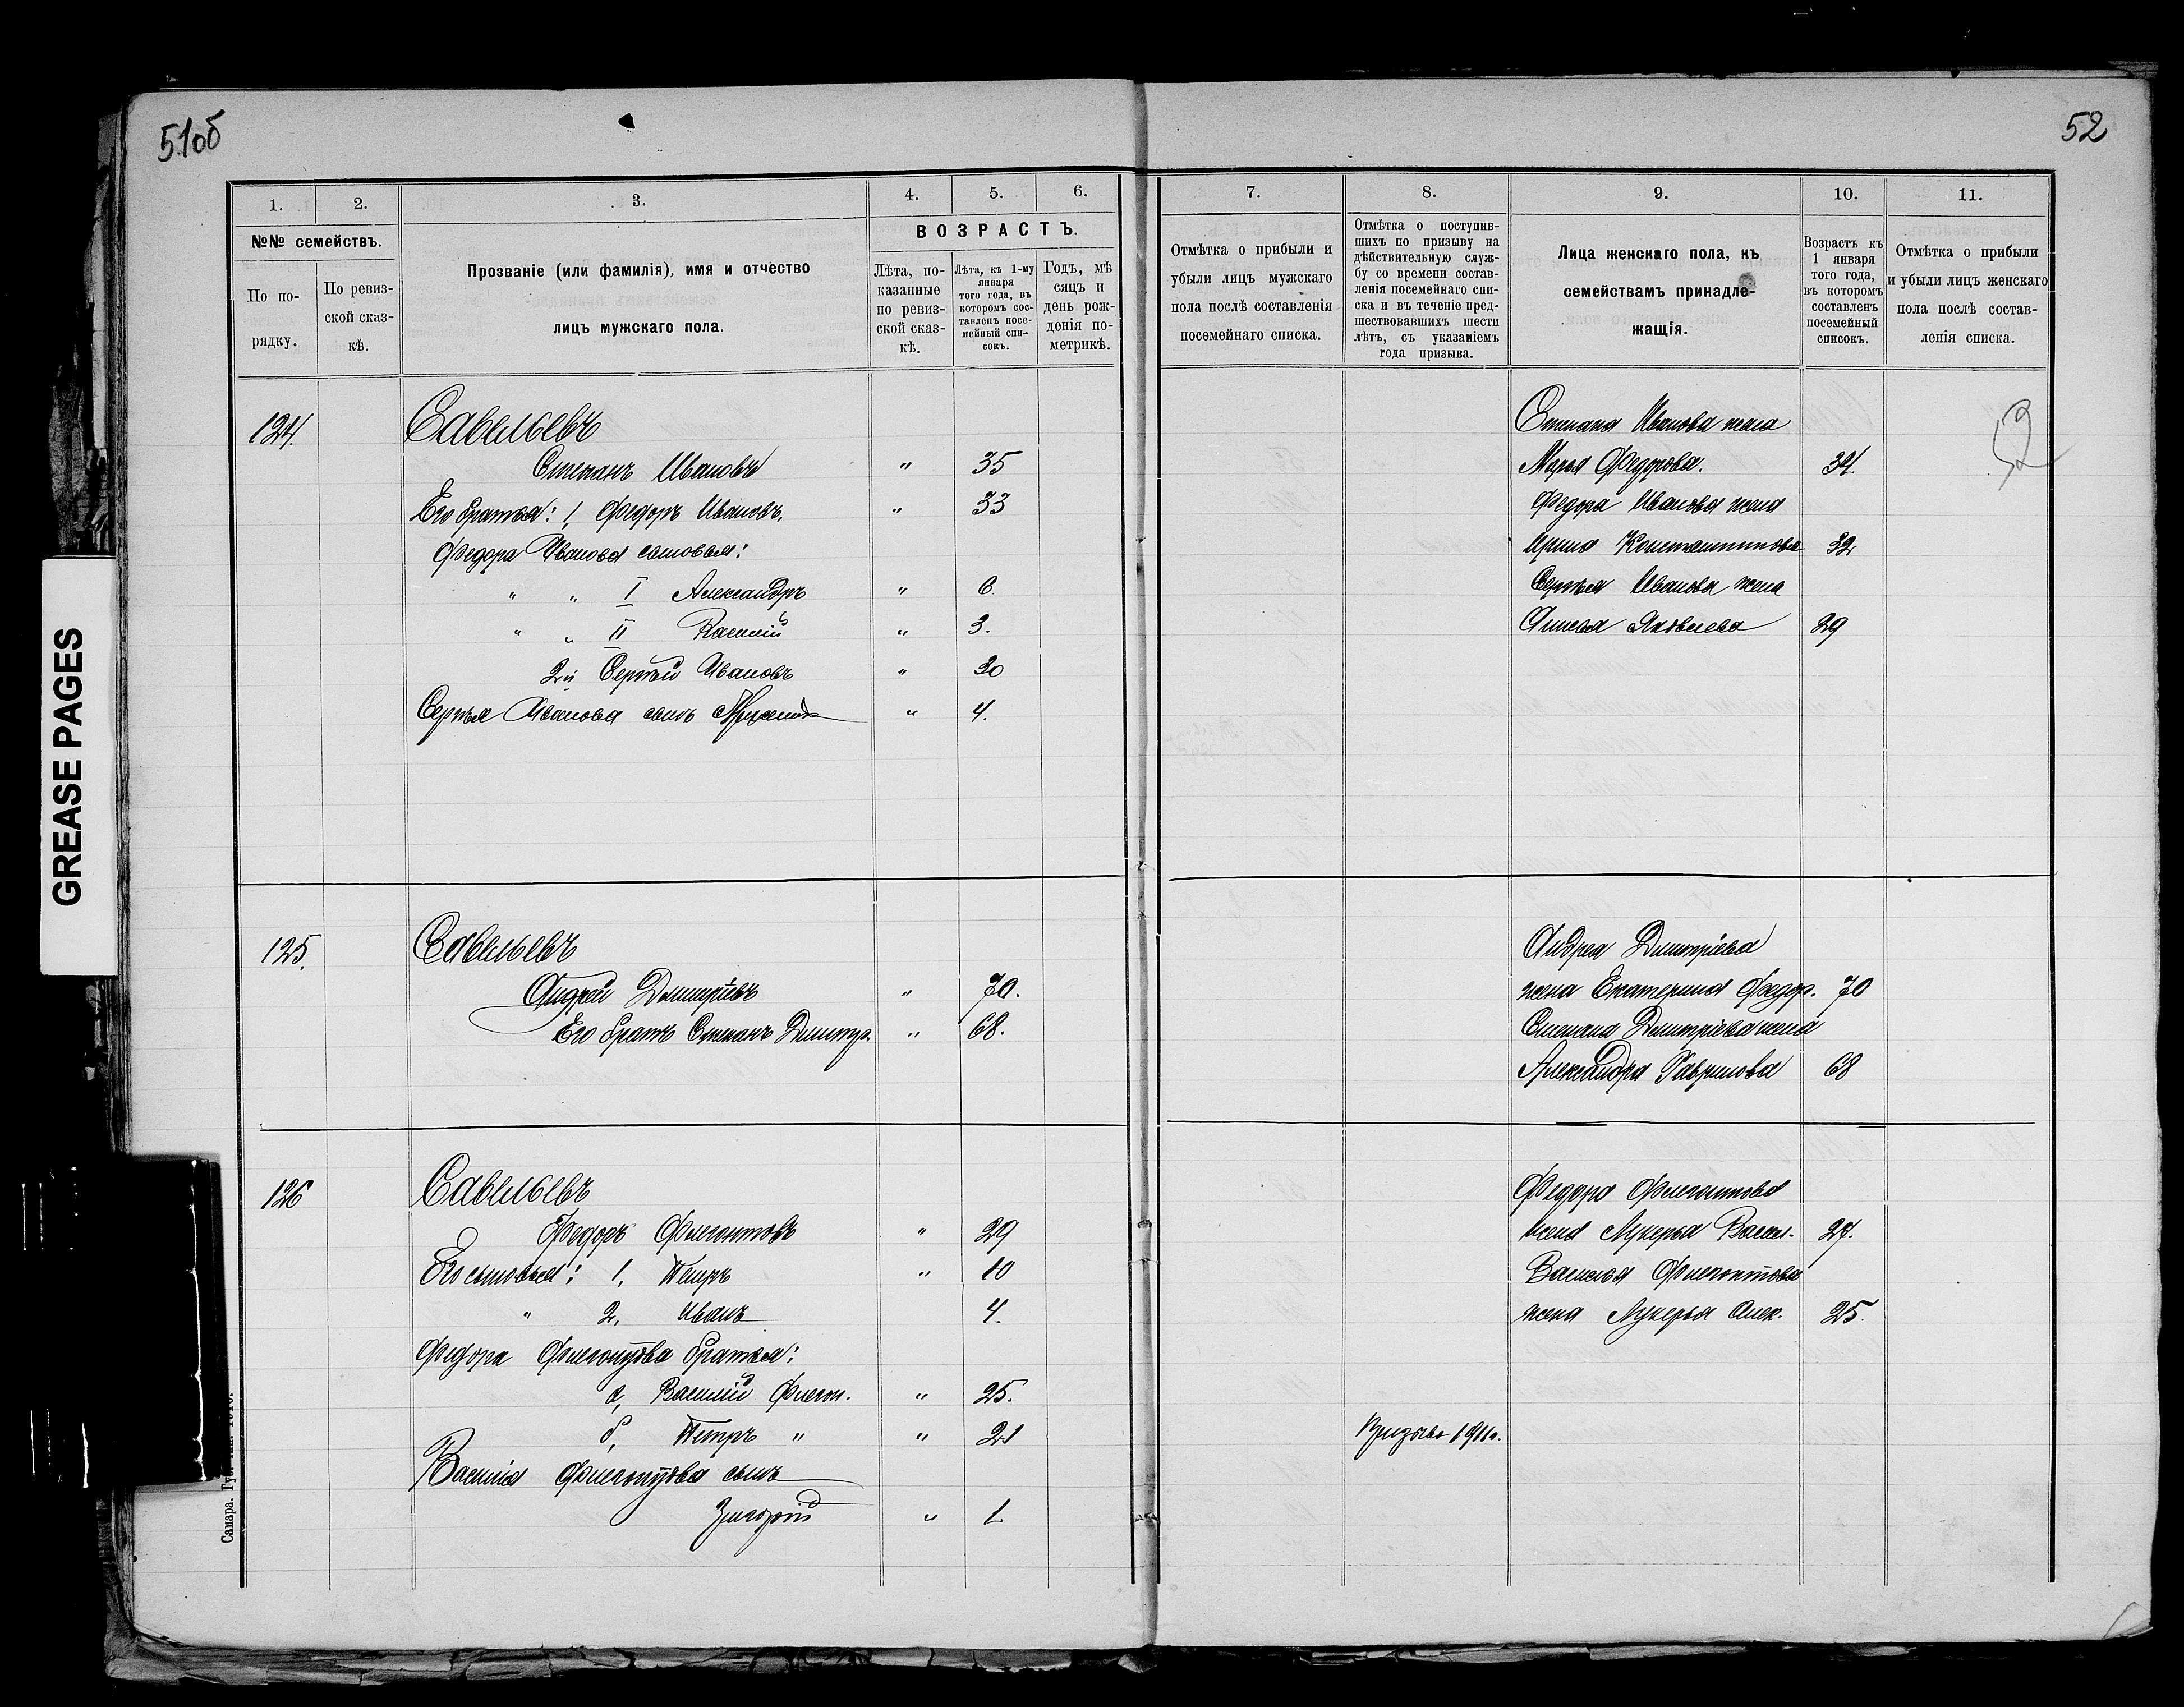 51об
52
1. 2. 3. 4. 5. 6.
№№ семействъ.
По порядку.
По ревизской сказкѣ.
Прозваніе (или фамилія), имя и отчество
лицъ мужскаго пола.
ВОЗРАСТЪ.
Лѣта, показанные по ревизской сказкѣ.
Лѣта, къ 1-му января того года, въ которомъ составленъ посемейный списокъ.
Годъ, мѣсяцъ и день рожденія по метрикѣ.
7. 8. 9. 10. 11.
Отмѣтка о прибыли и
убыли лицъ мужскаго
пола послѣ составленія
посемейнаго списка.
Отмѣтка о поступив-
шихъ по призыву на
дѣйствительную служ-
бу со времени состав-
ленія посемейнаго спи-
ска и въ теченіе пред-
шествовавшихъ шести
лѣтъ, съ указаніемъ
года призыва.
Лица женскаго пола, къ
семействамъ принадле-
жащія.
Возрастъ къ
1 января
того года,
въ которомъ
составленъ
посемейный
списокъ.
Отмѣтка о прибыли
и убыли лицъ женскаго
пола послѣ состав-
ленія списка.
124. Савельевъ
Степанъ Ивановъ " 35
Его братья: 1, Федоръ Ивановъ. " 33
Федора Иванова сыновья:
" " I Александръ " 6.
" " II Василій " 3.
2й Сергѣй Ивановъ " 30
Сергѣя Иванова сынъ " 4.
Степана Иванова жена
Марья Федорова. 34
Федора Иванова жена
Ирина Константинова 32
Сергѣя Иванова жена
Анисья Яковлева 29
52
125. Савельевъ
Андрей Дмитріевъ " 70.
Его братъ Степанъ Дмитр. " 68.
Андрея Дмитріева
жена Екатерина Федор. 70
Степана Дмитріева жена
Александра Гаврилова 68
126 Савельевъ
Федоръ Флегонтовъ " 29
Его сыновья: 1, Петръ " 10
" 2, Иванъ 4.
Федора Флегонтова братья:
а, Василій Флегон. " 25.
б, Петръ " " 21
Василія Флегонтова сынъ
Григорій " 1.
Призыва 1911 г.
Федора Флегонтова
жена Лукерья Васил. 27.
Василья Флегонтова
жена Лукерья Алек. 25.
GREASE PAGES